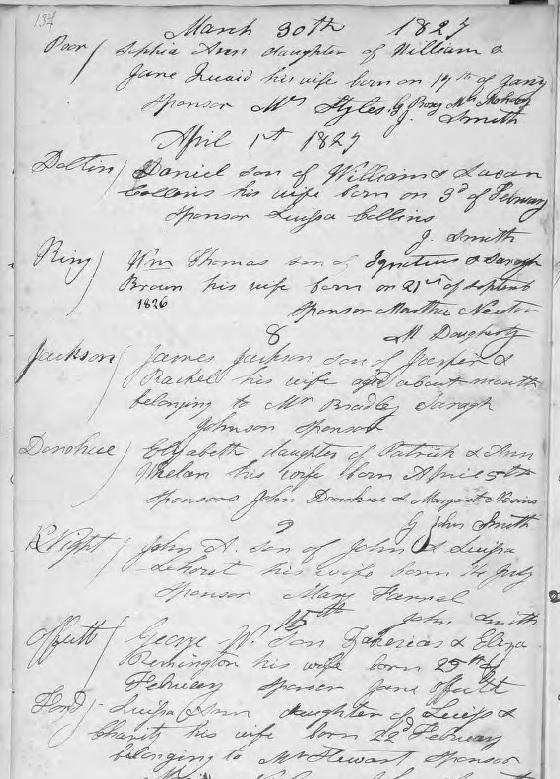 134
March 30th 1827
Poor / Sophia Ann daughter of William &
Jane Quaid his wife born on 19th of Jany
Sponsor Mrs Styles G Boxy Mrs
J. Smith
April 1st 1827
Daltin / Daniel son of William & Susan
Collins his wife born on 3d of February
Sponsor Luisa Collins
J. Smith
Ring / Wm Thomas son of Ignatius & Saragh
Brown his wife born on 21st of Septemb
1826 Sponsor Martha Newton
8 M Dougherty
Jackson / James Jackson son of Jasper &
Rachel his wife aged about month
belonging to Mr Bradley Saragh
Johnson Sponsor
Donohue / Elizabeth daughter of Patrick & Ann
Whelan his wife born April 5th
Sponsors John Donohue & Margaret
9 John Smith
KNight / John A. son of John & Luisa
his wife born the July
Sponsor Mary Farrel
15th John Smith
Offutt / George W. Son Zakerias & Eliza
Remington his wife born 25th of
February Sponsor Jane Offutt
Ford / Luisa Ann daughter of Luiss &
Charity his wife born 22d February
belonging to Mr Stewart Sponsor